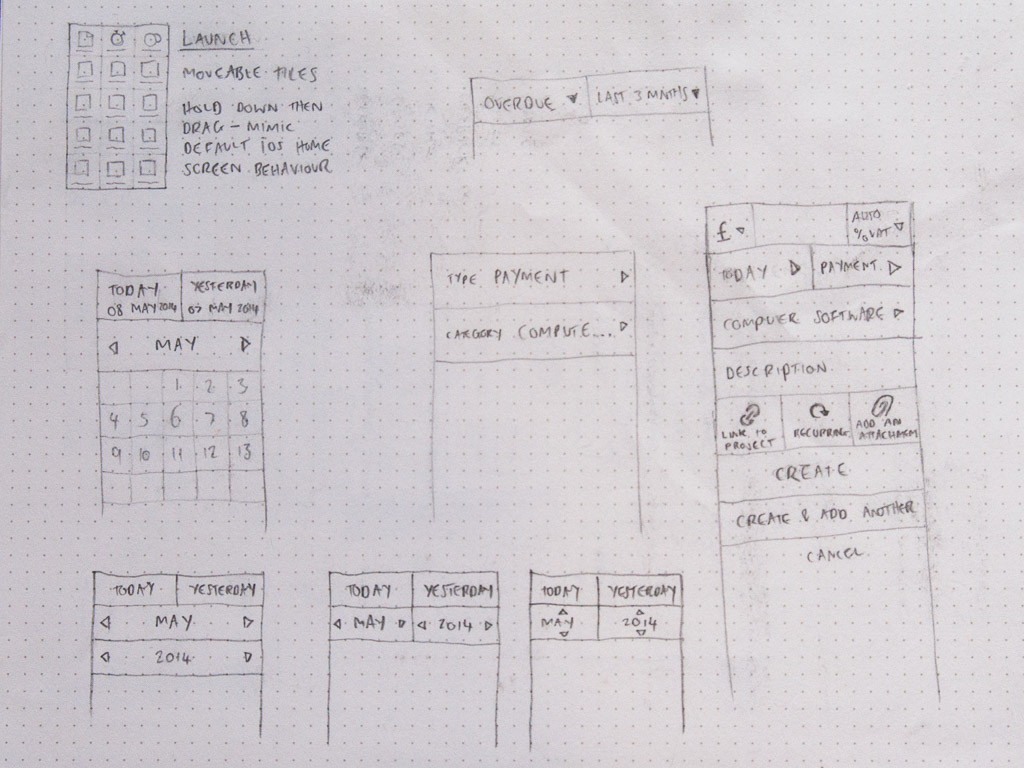 LAUNCH
MOVEABLE TILES
HOLD DOWN THEN
DRAG – MIMIC
DEFAULT iOS HOME
SCREEN BEHAVIOUR
OVERDUE LAST 3 MNTHS
£ AUTO
% VAT
TODAY PAYMENT
COMPUTER SOFTWARE
DESCRIPTION
LINK TO
PROJECT
RECURRING
ADD AN
ATTACHMEN
CREATE
CREATE & ADD ANOTHER
CANCEL
TYPE PAYMENT
CATEGORY COMPUTE....
TODAY YESTERDAY
08 MAY 2014 07 MAY 2014
MAY
1 2 3
4 5 6 7 8
9 10 11 12 13
TODAY YESTERDAY
MAY
2014
TODAY YESTERDAY
MAY 2014
TODAY YESTERDAY
MAY 2014